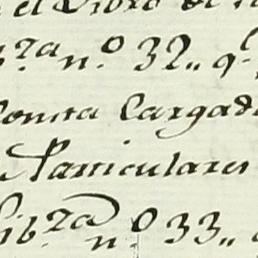 el Libro de
bᵗᵃ n.º 32,, q.ᵉ
Consta Cargad
Particulares
Libᵗᵃ n.º 33,,